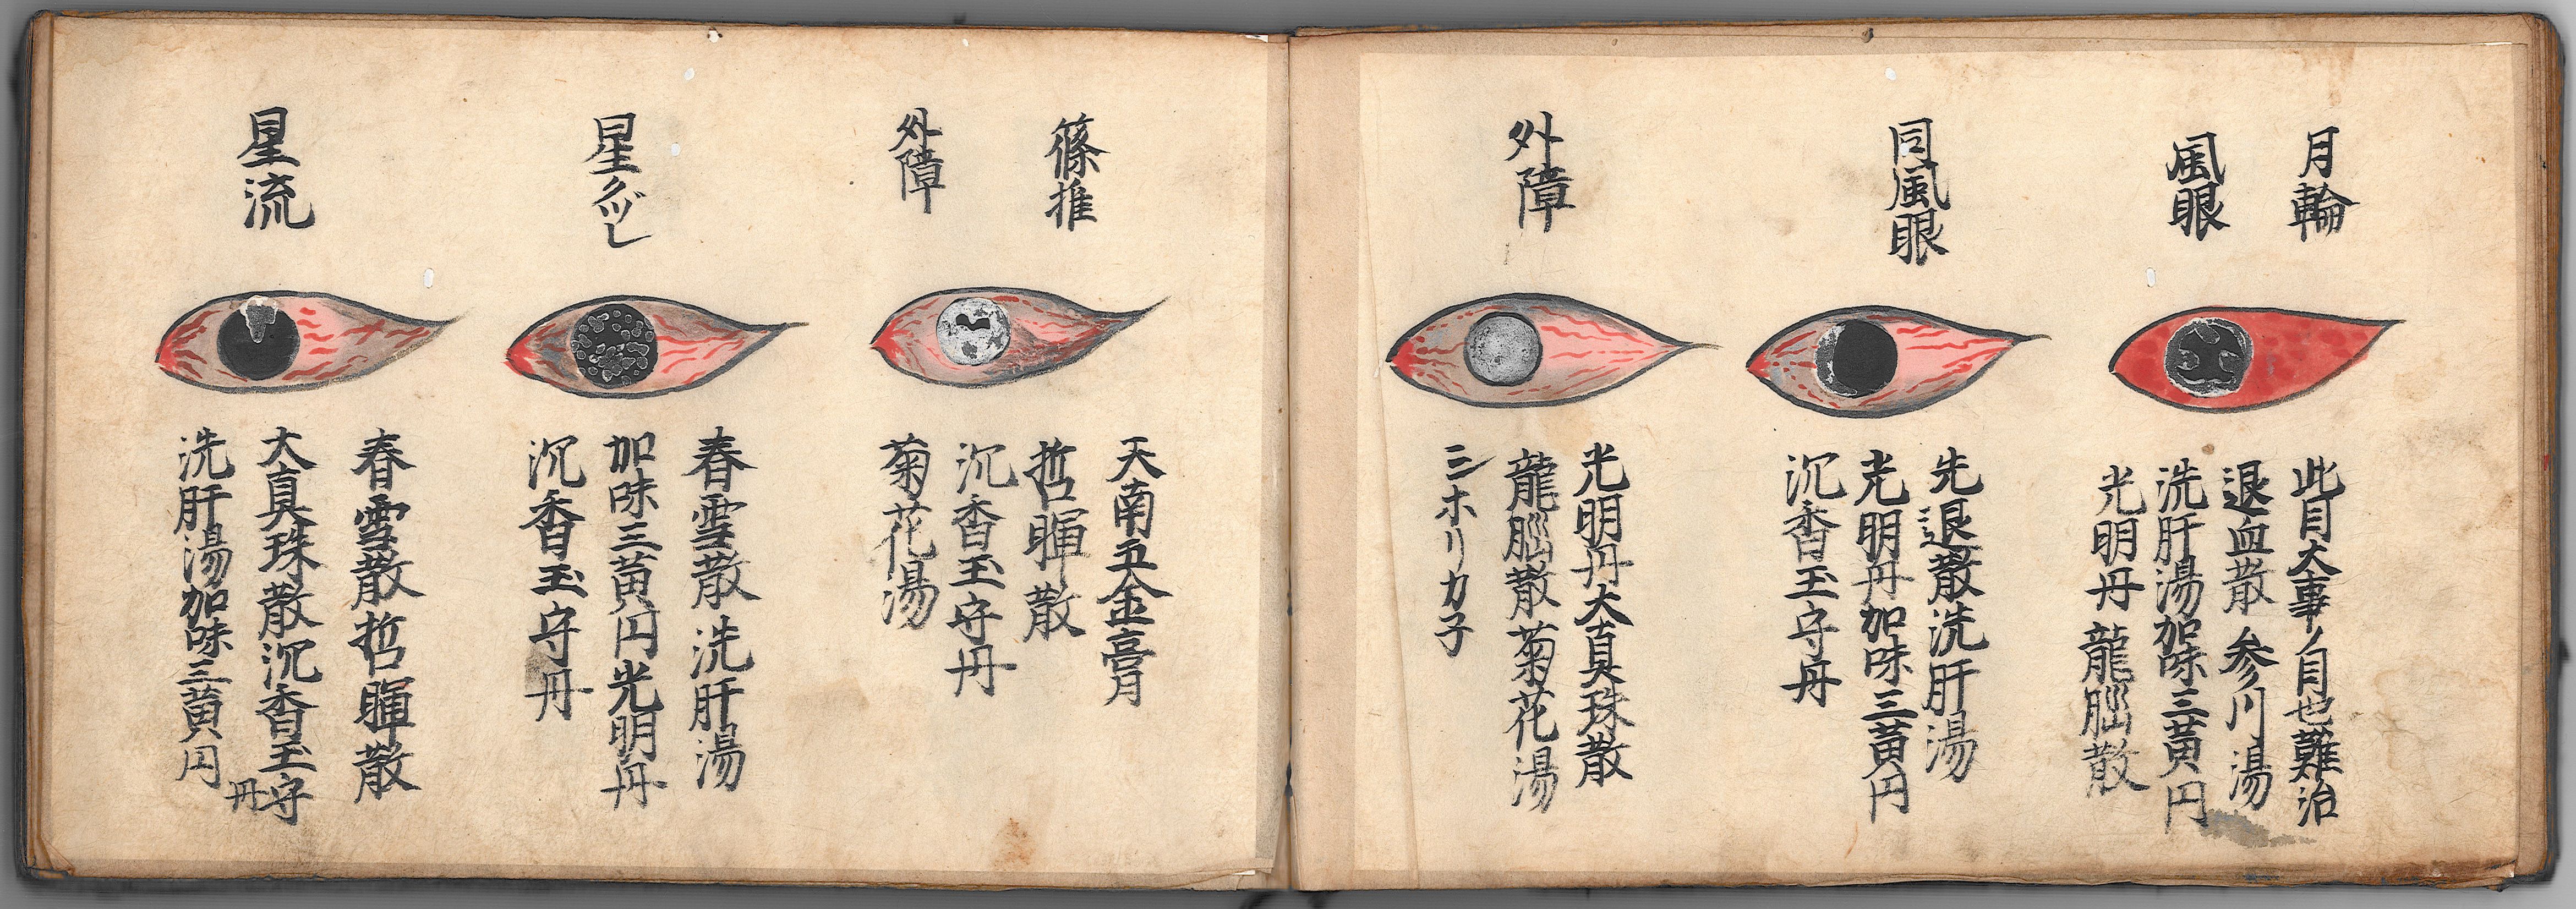 月輪
風眼
此目大事ノ目也難治
退血散 参川湯
洗肝湯加味三黄円
光明丹 龍脳散
同風眼
先退散洗肝湯
光明丹加味三黄円
沉香玉守丹
外障
光明丹大真珠散
龍脳散菊花湯
ミホリカ子
篠推
外障
天南五金膏
哲暉散
沉香玉守丹
菊花湯
星
春雪散 洗肝湯
加味三黄円光明丹
沉香玉守丹
星流
春雪散哲暉散
大真珠散沉香玉守丹
洗肝湯加味三黄円